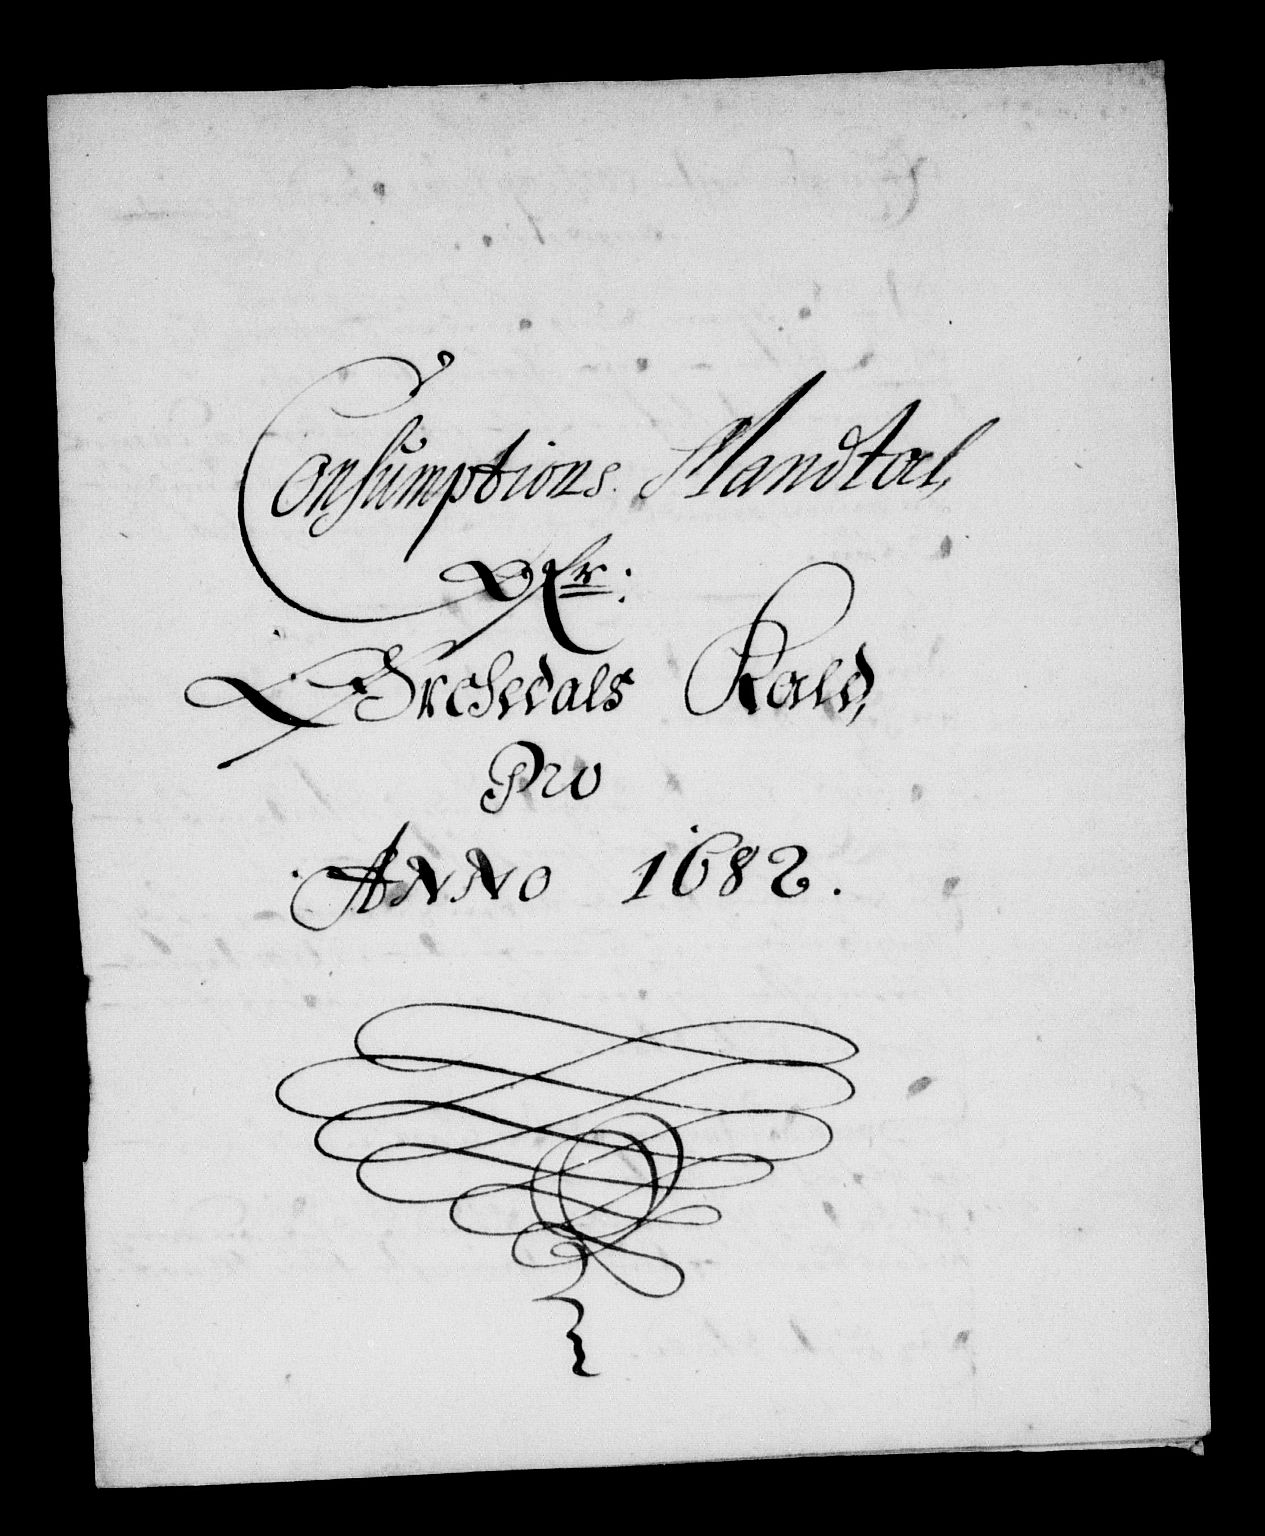 Consumptions Mandtal,
Afr:
Orchedals Roald,
Pro
ANNO 1682.